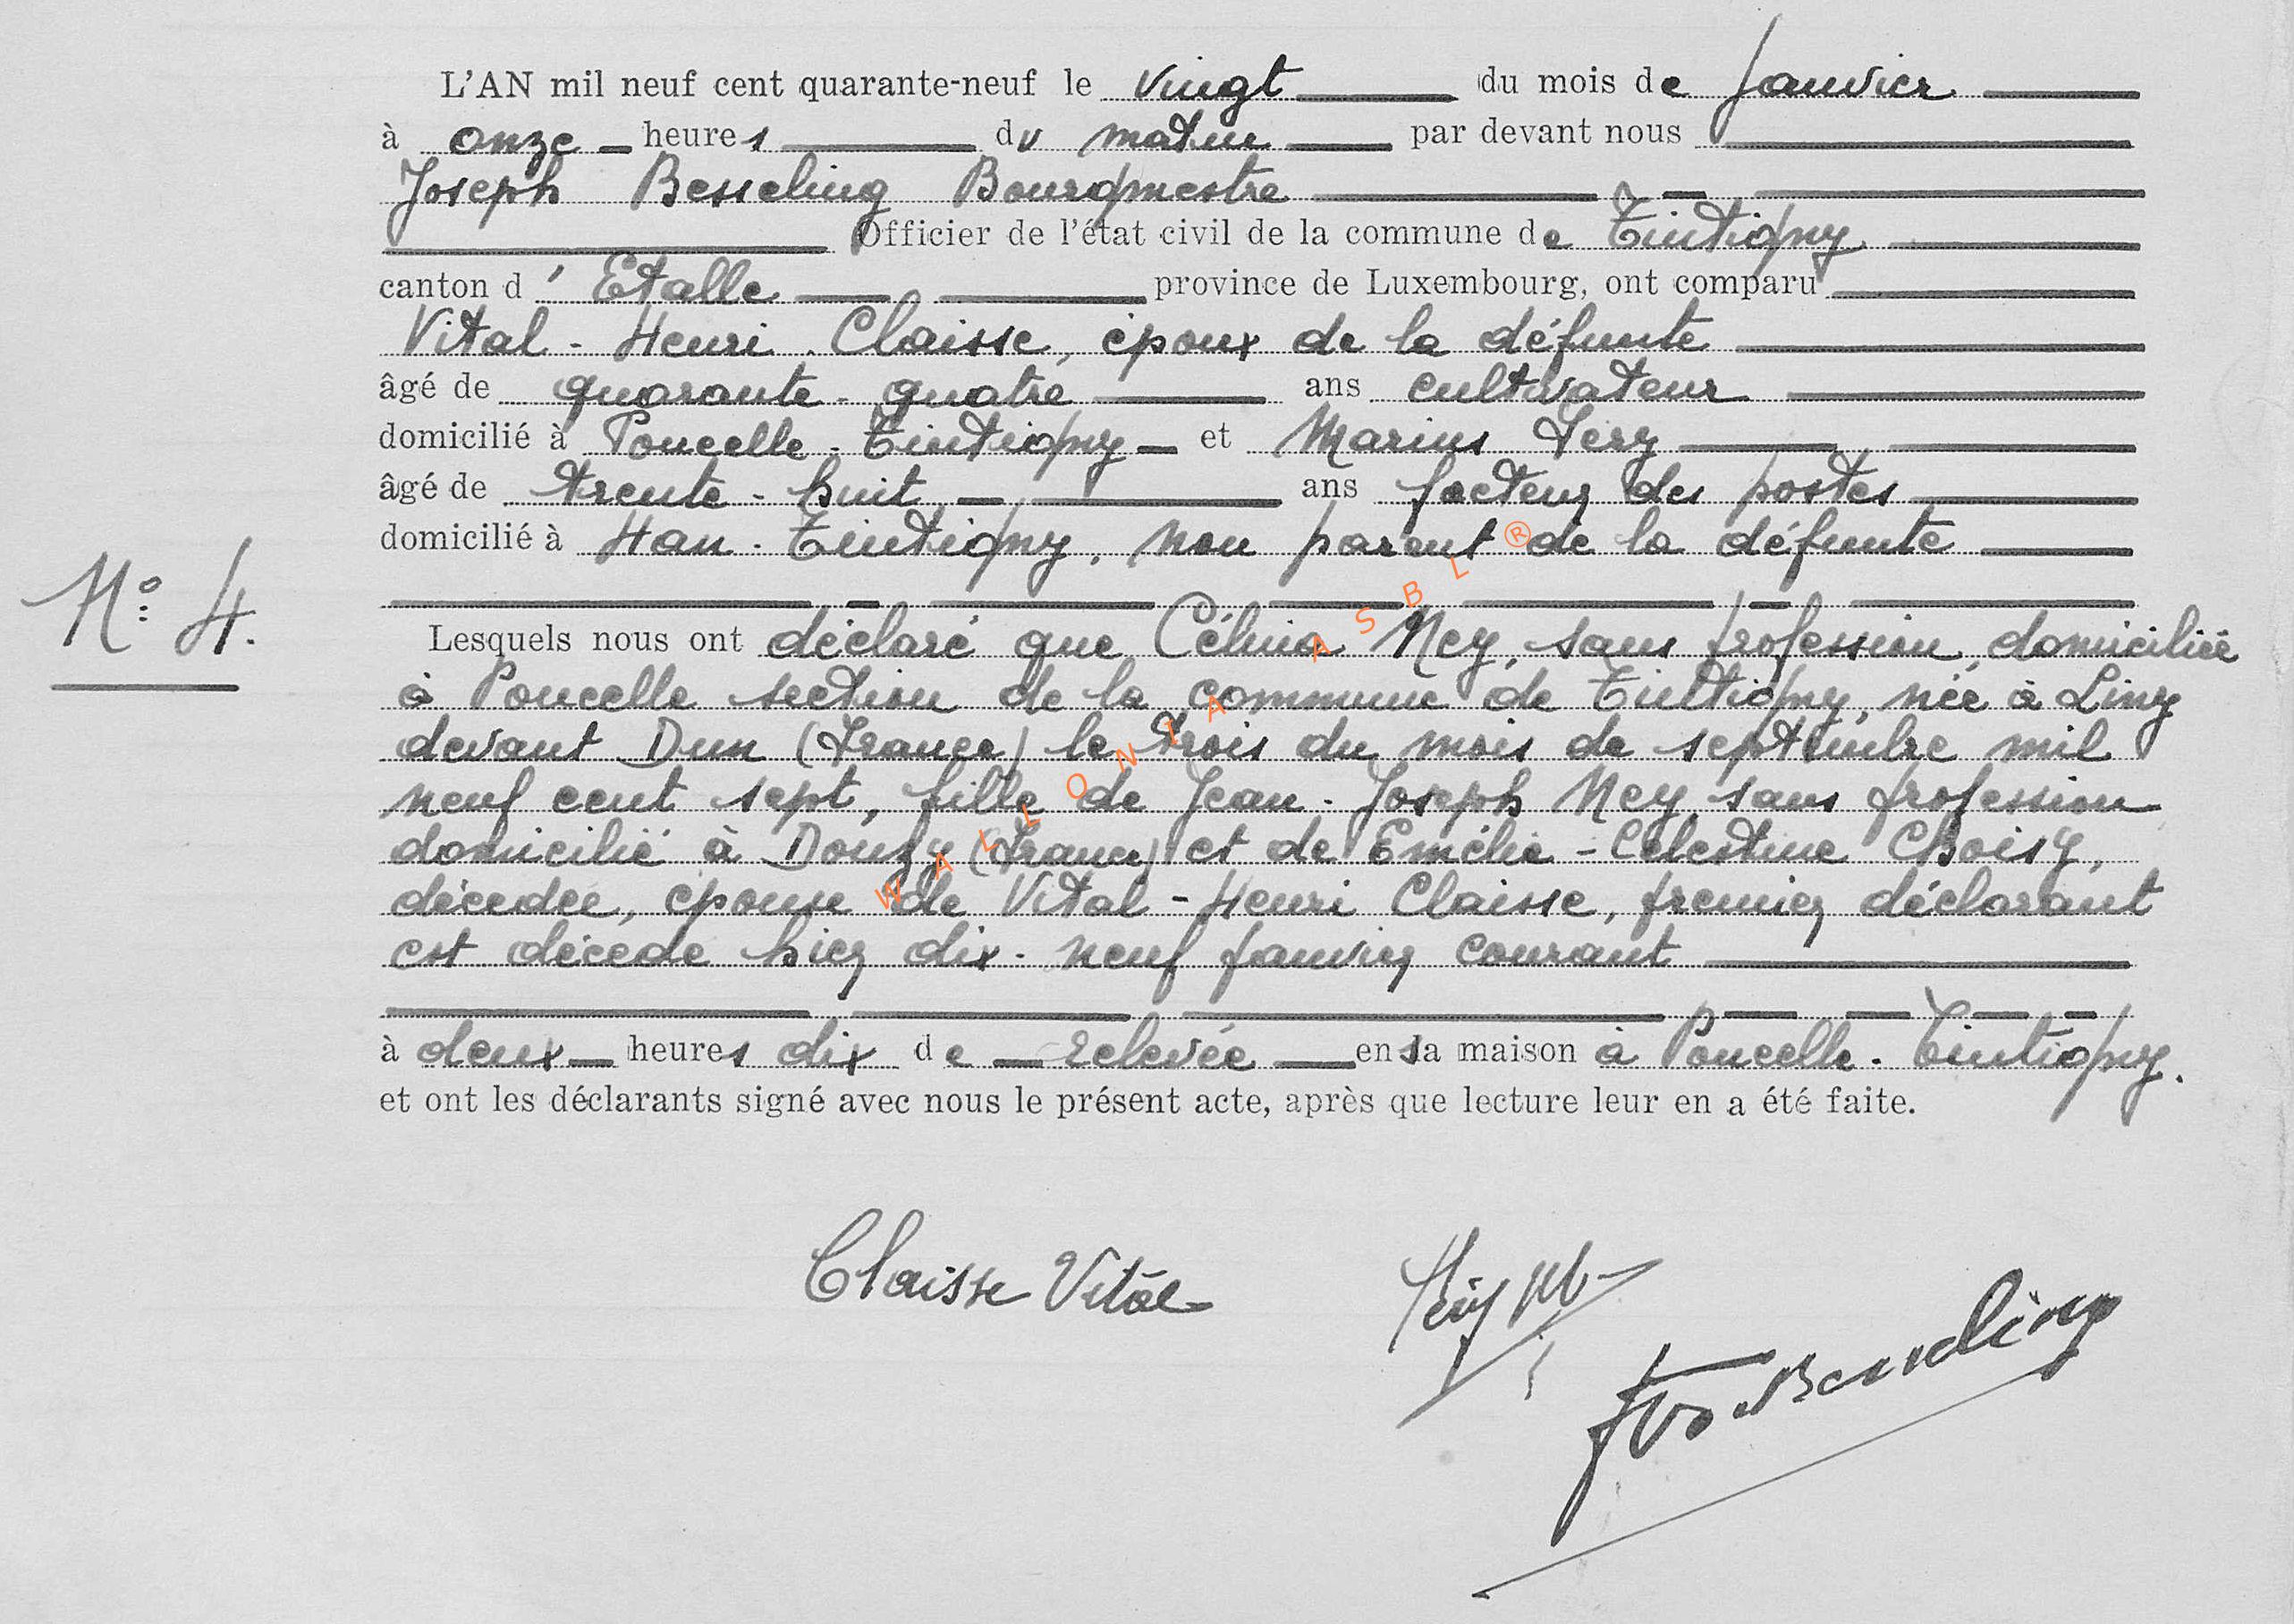 L'AN mil neuf cent quarante-neuf le vingt du mois de janvier
à onze heures du matin par devant nous
Joseph Besseling Bourgmestre
Officier de l'état civil de la commune de Tintigny
canton d' Etalle province de Luxembourg, ont comparu
Vital - Henri . Claisse, époux de la défunte
âgé de quarante - quatre ans cultivateur
domicilié à Poncelle - Tintigny et Marius Fery
âgé de trente - huit ans facteur des postes
domicilié à Han - Tintigny, non parent de la défunte
N° 4.
Lesquels nous ont déclaré que Célina Ney, sans profession, domiciliée
à Poncelle section de la commune de Tintigny, née à Liny
devant Dun (France) le trois du mois de septembre mil
neuf cent sept, fille de Jean - Joseph Ney sans profession
domicilié à Douzy (France) et de Emélie - Célestine Choisy,
décédée, épouse de Vital - Henri Claisse, premier déclarant
est décédé hier dix - neuf janvier courant
à deux heures dix de relevée en sa maison à Poncelle - Tintigny.
et ont les déclarants signé avec nous le présent acte, après que lecture leur en a été faite.
Claisse Vital
WALLONIA ASBL ®